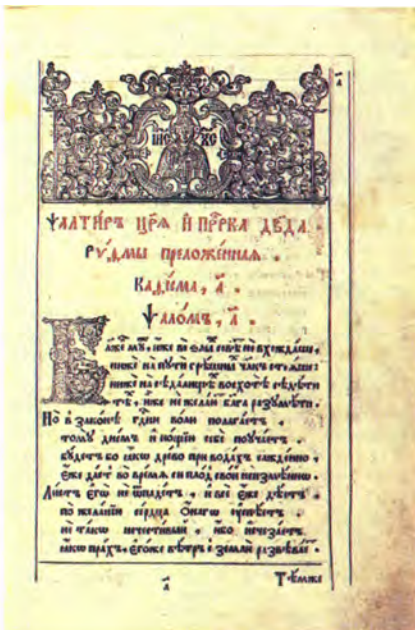 а҃
ІИ҃С ХС҃
Ѱалти́ръ цр҃ѧ и҆ прⷪ҇рка дв҃да .
Рѵ́ѳмы преложе́ннаѧ .
Каѳі́сма, а҃ .
Ѱало́мъ, а҃ .
Бл҃же́ мꙋ́жъ, и҆́же во ѕлы́ совѣ́ не вхожда́ше,
ниже́ на пꙋти́ грѣ́шны члк҃ъ стоѧ́ше:
ниже́ на сѣда́лищѣ восхотѣ̀ сѣдѣ́ти
тѣ́, и҆́же не жела́ю бл҃га разꙋмѣ́ти.
Но в зако́нѣ гд҃ни во́ли полага́етъ,
томꙋ̀ дне́мъ и҆ но́щїю себѐ поꙋча́етъ .
бꙋ́детъ бо ꙗ҆́кѡ дре́во при вода́хъ сажде́нно,
є҆́же дае́тъ во вре́мѧ си пло́д сво́й неизмѣ́нно .
Ли́стъ є҆гѡ̀ не ѿпаде́тъ, и҆ всѐ є҆́же дѣ́етъ,
по жела́нїи се́рдца ѻ҆́нагѡ ᲂу҆спѣ́етъ .
не та́кѡ нечести́вый, и҆́бо и҆счеза́етъ
ꙗ҆́кѡ пра́хъ, є҆го́же вѣ́тръ ѿ земли́ развѣва́етъ .
а҃
Тѣ́мже